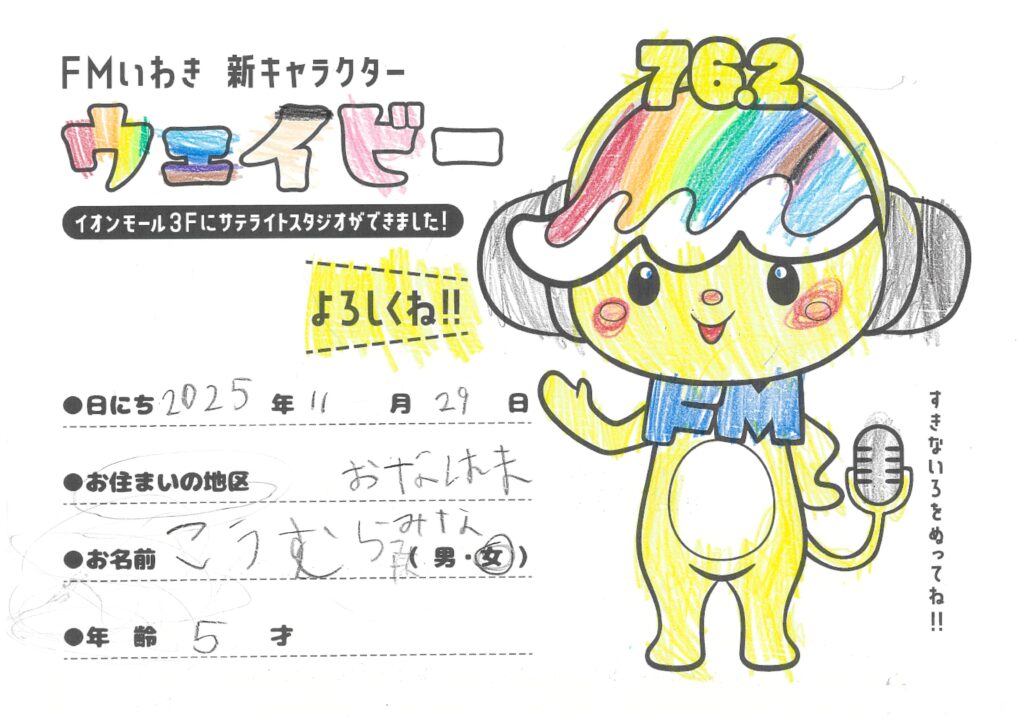 FMいわき 新キャラクター
ウェイビー
イオンモール3Fにサテライトスタジオができました!
よろしくね!!
●日にち 2025 年 11 月 29 日
●お住まいの地区 おなはま
●お名前 こうむら みな (男・女)
●年 齢 5 才
76.2
FM
すきないろをぬってね!!